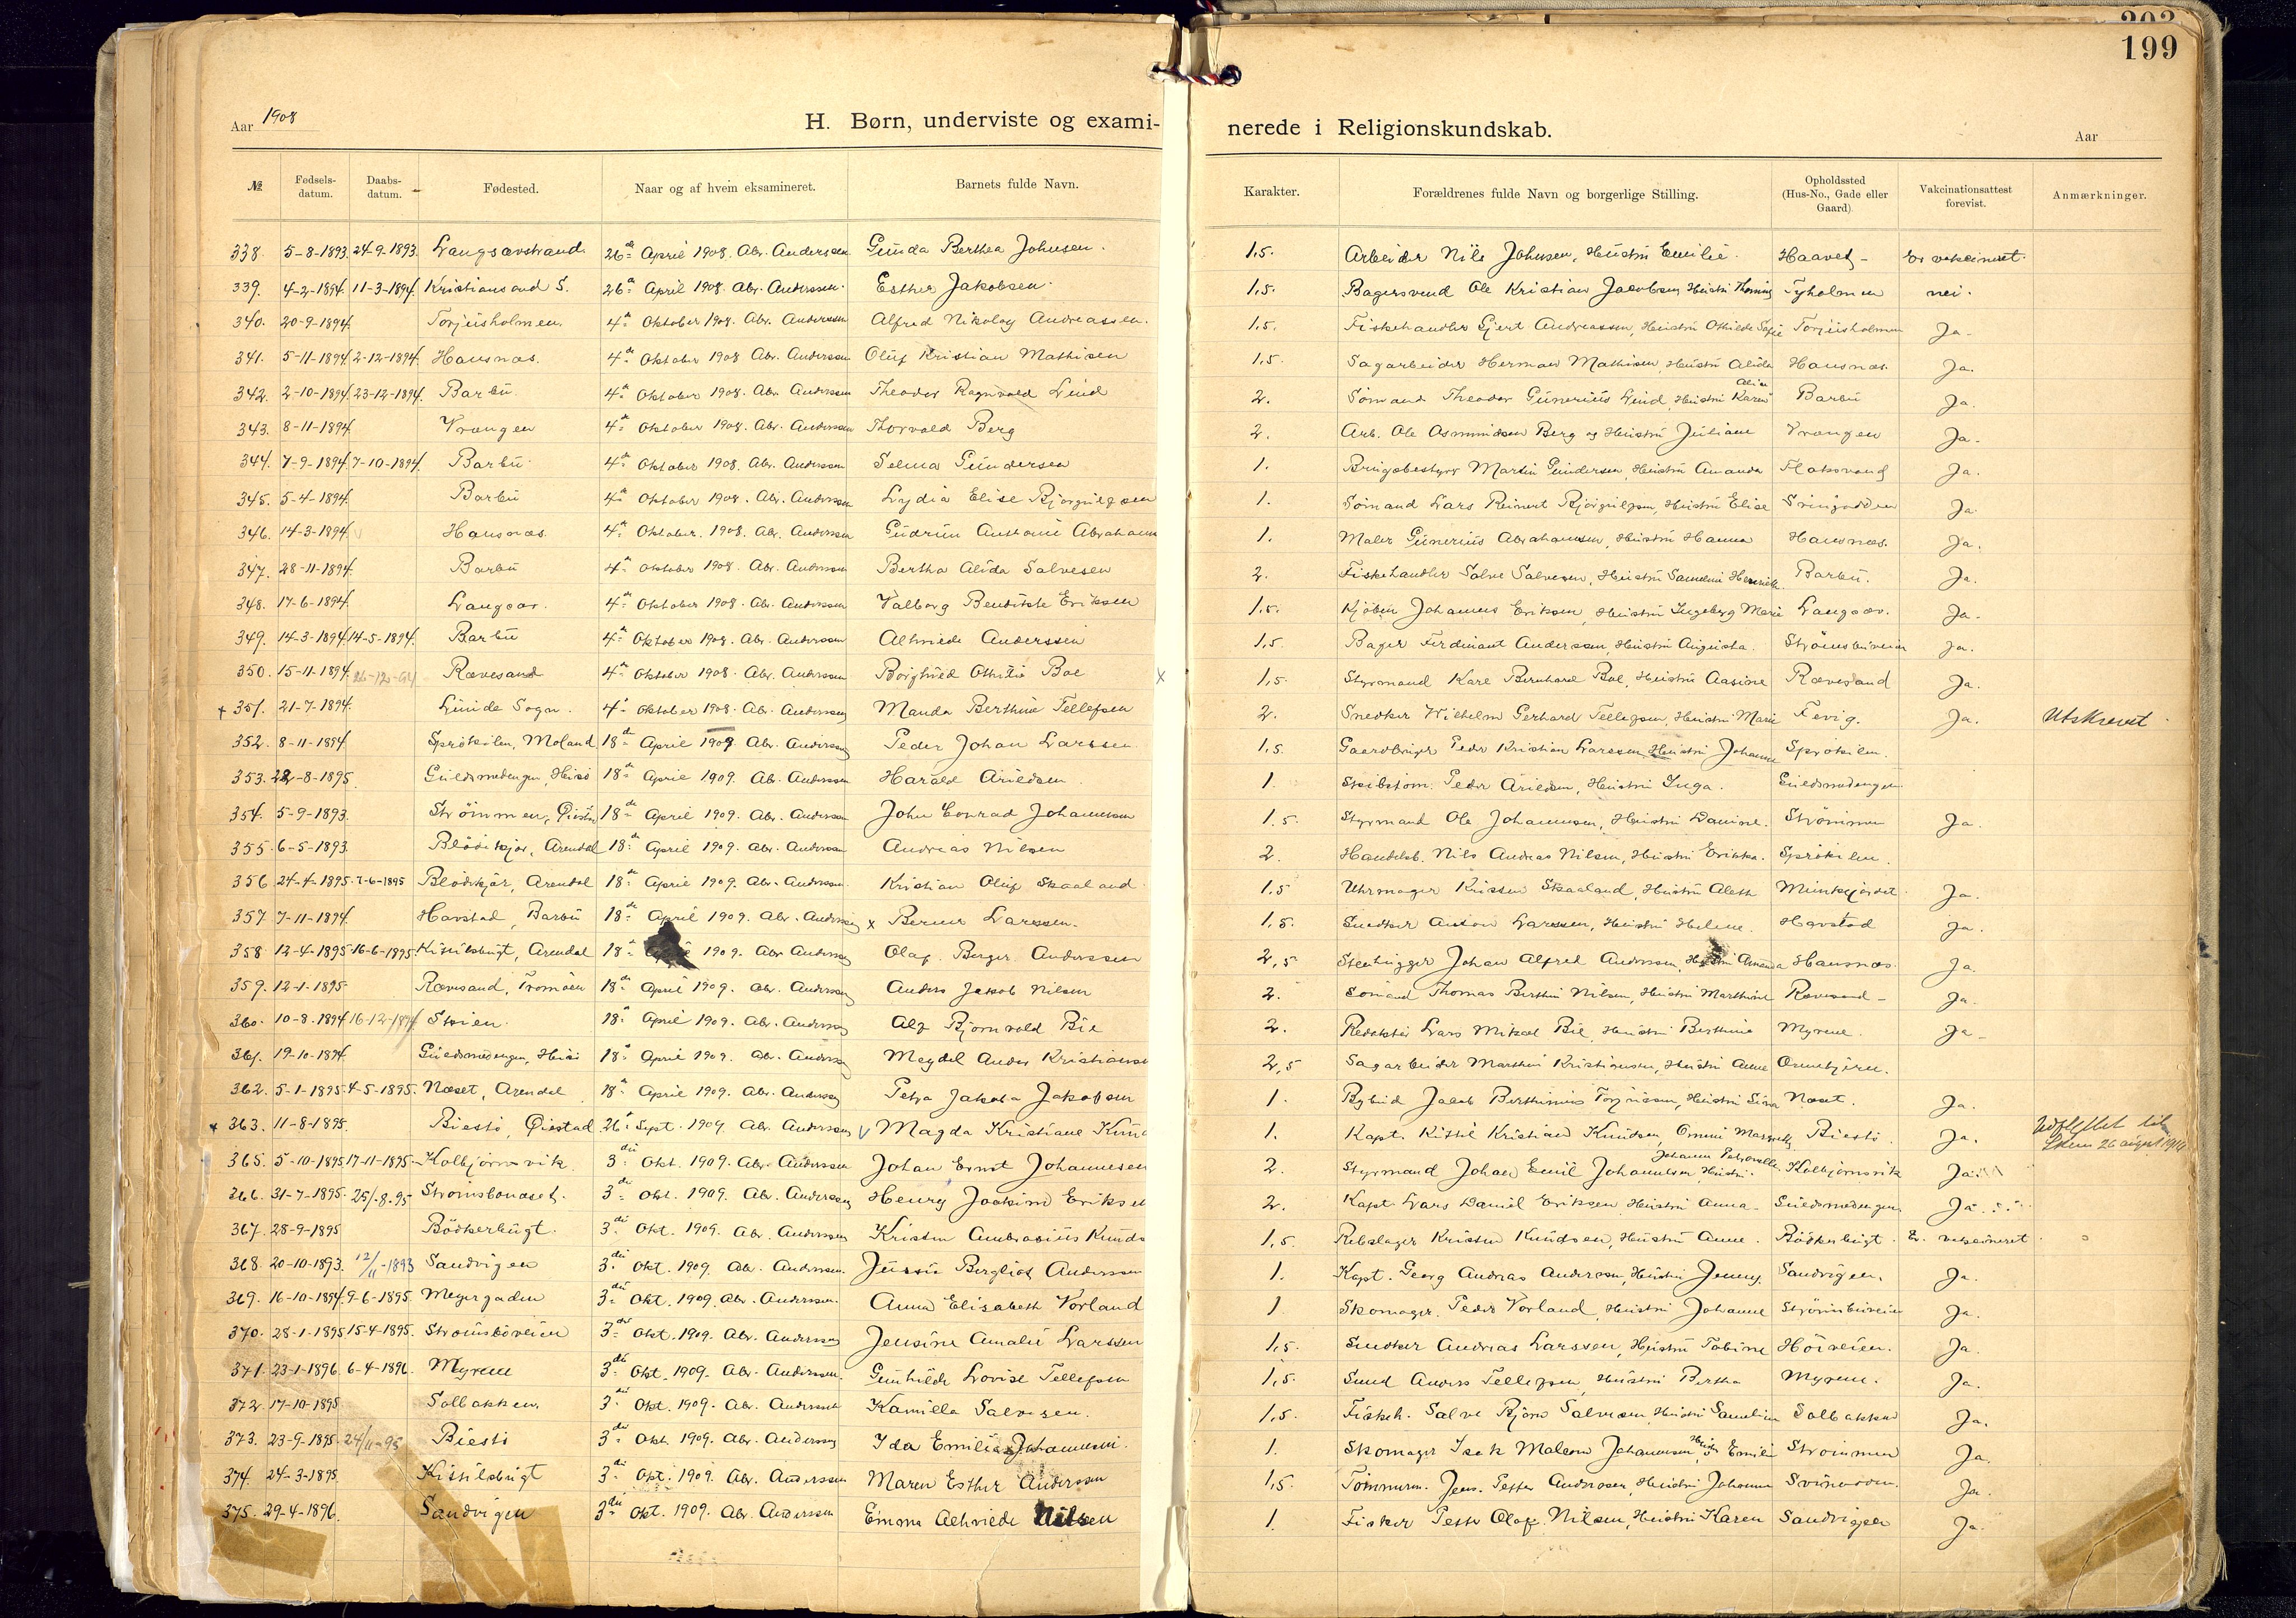 199
Aar 1908
H. Børn, underviste og exami- nerede i Religionskundskab.
Aar
№ Fødsels-datum. Daabs-datum. Fødested. Naar og af hvem eksamineret. Barnets fulde Navn. Karakter. Forældrenes fulde Navn og borgerlige Stilling. Opholdssted (Hus-No., Gade eller Gaard). Vakcinationsattest forevist. Anmærkninger.
338. 5-8-1893. 24-9-1893. Langsævstrand. 26de April 1908. Abr. Anderssen Gunda Berthea Johnsen. 1,5. Arbeider Nils Johnsen, Hustru Emilie. Er vakcineret.
339. 4-2-1894. 11-3-1894. Kristiansand S. 26de April 1908. Abr. Anderssen. Esther Jakobsen. 1,5. Bagersvend Ole Kristian Jacobsen, Hustru Tyholmen nei.
340. 20-9-1894. Torjusholmen. 4de Oktober 1908. Abr. Anderssen Alfred Nikolay Andreassen. 1,5. Fiskehandler Gjert Andreassen, Hustru Othilde Sofie Torjusholmen Ja.
341. 5-11-1894. 2-12-1894. Hausnæs. 4de Oktober 1908 Abr. Anderssen Oluf Kristian Mathisen 1,5. Sagarbeider Herman Mathisen, Hustru Alida Hausnæs. Ja.
342. 2-10-1894. 23-12-1894. Barbu. 4de Oktober 1908. Abr. Anderssen Theodor Ragnvald Lund 2. Sömand Theodor Gunerius Lund, Hustru Karen Barbu Ja.
343. 8-11-1894. Vrengen 4de Oktober 1908. Abr. Anderssen Thorvald Berg 2. Arb. Ole Osmundsen Berg og Hustru Juliane Vrengen Ja.
344. 7-9-1894. 7-10-1894. Barbu. 4de Oktober 1908. Abr. Anderssen Selma Gundersen 1. Martin Gundersen, Hustru Amanda Flaksvand Ja.
345. 5-4-1894. Barbu 4de Oktober 1908. Abr. Anderssen Lydia Elise Bjørgulfsen 1. Sömand Lars Reinert Bjørgulfsen, Hustru Elise Ja.
346. 14-3-1894. Hausnæs. 4de Oktober. 1908. Abr. Anderssen Gudrun Antonie Abrahams 1. Maler Gunerius Abrahamsen, Hustru Hanna Hausnæs. Ja.
347. 28-11-1894. Barbu 4de Oktober 1908. Abr. Anderssen Bertha Alida Salvesen 2. Fiskehandler Salve Salvesen, Hustru Sameline Henriette. Barbu. Ja.
348. 17-6-1894. Langsæv. 4de Oktober 1908. Abr. Anderssen Valborg Bendikte Eriksen 1,5. Kjöbm Johannes Eriksen, Hustru Ingeborg Marie Langsæv. Ja.
349. 14-3-1894. 14-5-1894. Barbu 4de Oktober 1908. Abr. Anderssen Alfhilde Anderssen 1,5. Bager Ferdinant Anderssen, Hustru Augusta. Strömsbuveien Ja.
350. 15-11-1894. 26-12-94 Rævesand 4de Oktober 1908. Abr. Anderssen Borghild Othilie Boe x 1,5. Styrmand Karl Bernhard Boe, Hustru Aasine Rævesand Ja.
x 351. 21-7-1894. Lunde Sogn. 4de Oktober 1908. Abr. Anderssen Manda Berthine Tellefsen 2. Snedker Wilhelm Gerhard Tellefsen, Hustru Marie Fevig. Ja. Utskrevet.
352. 8-11-1894 Sprökilen, Moland 18de April 1909. Abr. Anderssen Peder Johan Larssen. 1,5. Gaardbruger Peder Kristian Larssen, Hustru Johanne Sprökilen.
353. 22-8-1895. Guldsmedengen, Hisö 18de April 1909. Abr. Anderssen Harald Arildsen. 1. Skibstöm. Peder Arildsen, Hustru Inga. Guldsmedengen.
354. 5-9-1893. Strömmen, Öiestad 18de April 1909. Abr. Anderssen John Conrad Johannesen 1,5. Styrmand Ole Johannesen, Hustru Danine. Strömmen Ja.
355. 6-5-1893. Blödekjær, Arendal 18de April 1909. Abr. Anderssen Andreas Nilsen 2. Handelsb. Nils Andreas Nilsen, Hustru Erikka. Sprökilen.
356 24-4-1895. 7-6-1895 Blödekjær, Arendal 18de April 1909. Abr. Anderssen. Kristian Oluf Skaaland. 1,5 Uhrmager Kristen Skaaland, Hustru Aleth Munkejordet. Ja.
357 7-11-1894. Havstad, Barbu 18de April 1909. Abr. Anderssen x Berner Larssen. 1,5. Snedker Anton Larssen, Hustru Helene. Havstad Ja.
358 12-4-1895 16-6-1895. Kittilsbugt, Arendal 18de April 1909. Abr Anderssen Olaf Berger Anderssen 2,5 Stenhugger Johan Alfred Anderssen, Hustru Amanda Hausnæs. Ja.
359. 12-1-1895 Rævesand, Tromöen 18de April 1909. Abr. Anderssen Anders Jakob Nilsen 2. Sömand Thomas Berthin Nilsen, Hustru Marthine Rævesand Ja.
360. 10-8-1894 16-12-1894 Skien. 18de April 1909. Abr. Anderssen Alf Bjornvold Bie 2. Redaktör Lars Mikal Bie, Hustru Berthine Myrene. Ja
361. 19-10-1894. Guldsmedengen, Hisö 18de April 1909. Abr. Anderssen Meydel Andor Kristiansen 2,5 Sagarbeider Marthin Kristiansen, Hustru Anne
362. 5-1-1895. 4-5-1895. Næset, Arendal 18de April 1909. Abr. Anderssen Petra Jakoba Jakobsen 1. Bybud Jacob Berthinius Torjussen, Hustru Sina Næset. Ja.
x 363. 11-8-1895. Biestö, Öiestad 26de Sept. 1909. Abr. Anderssen v Magda Kristiane Knud 1. Kapt. Kittil Kristian Knudsen, Biestö. Ja. Udflyttet til Skien 26 august 1914
365. 5-10-1895 17-11-1895 Kolbjörnsvik 3die Okt. 1909. Abr. Anderssen Johan Ernst Johannesen 2. Styrmand Johan Emil Johannesen, Hustru Johanne Petronelle. Kolbjörnsvik Ja.
266. 31-7-1895. 25/-8-95 Strömsbonæset. 3die Okt. 1909. Abr. Anderssen Henry Joakim Eriksen 2. Kapt. Lars Daniel Eriksen, Hustru Anna. Guldsmedengen Ja.
367. 28-9-1895 Bödkerbugt. 3die Okt. 1909. Abr. Anderssen Kristen Ambrosius Knuds 1,5. Rebslager Kristen Knudsen, Hustru Anne. Bödkerbugt. Er vakcineret.
368 20-10-1893. 12/11-1893 Sandvigen 3die Okt. 1909. Abr. Anderssen. Jussie Bergliot Anderssen 1. Kapt. Georg Andreas Anderssen, Hustru Jenny. Sandvigen. Ja.
369. 16-10-1894. 9-6-1895. Meyergaden 3die Okt. 1909. Abr. Anderssen. Anna Elisabeth Vorland 1 Skomager. Peder Vorland, Hustru Johanne Strömsbuveien Ja.
370. 28-1-1895 15-4-1895. Strömsboveien 3die Okt. 1909. Abr. Anderssen Jensine Amalie Larssen 1,5. Snedker Andreas Larssen, Hustru Tobine Höiveien. Ja.
371. 23-1-1896. 6-4-1896. Myrene 3die Okt. 1909. Abr. Anderssen. Gunhilde Lovise Tellefsen 1,5. Smed Anders Tellefsen, Hustru Bertha Myrene. Ja.
372. 17-10-1895 Solbakken. 3die Okt. 1909. Abr. Anderssen Kamilla Salvesen. 1,5. Fiskeh. Salve Björn Salvesen, Hustru Sameline Solbakken Ja.
373. 23-9-1895. 24/11-95 Biestö 3die Okt. 1909. Abr. Anderssen Ida Emilie Johannesen. 1. Skomager Isak Malcom Johannesen, Hustru Emilie Strömmen Ja.
374. 24-3-1895 Kittilsbugt 3die Okt. 1909. Abr. Anderssen Maren Esther Anderssen 1,5. Tömmerm. Jens. Petter Anderssen, Hustru Johanne Ja.
375. 29-4-1896. Sandvigen 3die Okt. 1909. Abr. Anderssen Emma Alfhilde Nilsen 1. Fisker Peter Olaf Nilsen, Hustru Karen Sandvigen Ja.